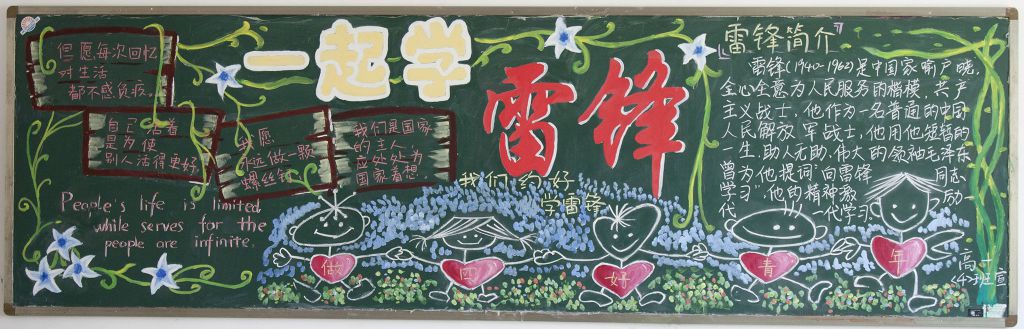 但愿每次回忆
对生活
都不感负疚。
自己活着
是为使
别人活得更好
我愿
永远做一颗
螺丝钉
我们是国家
的主人
应处处为
国家着想。
People's life is limited
while serves for the
people are infinite.
一起学
雷锋
我们约好
学雷锋
做四好青年
雷锋简介
雷锋(1940-1962)是中国家喻户晓,
全心全意为人民服务的楷模,共产
主义战士,他作为一名普通的中国
人民解放军战士,他用他短暂的
一生,助人无助.伟大的领袖毛泽东
曾为他提词"向雷锋同志
学习"他的精神激励一
代一代学习
高一
(4)班宣